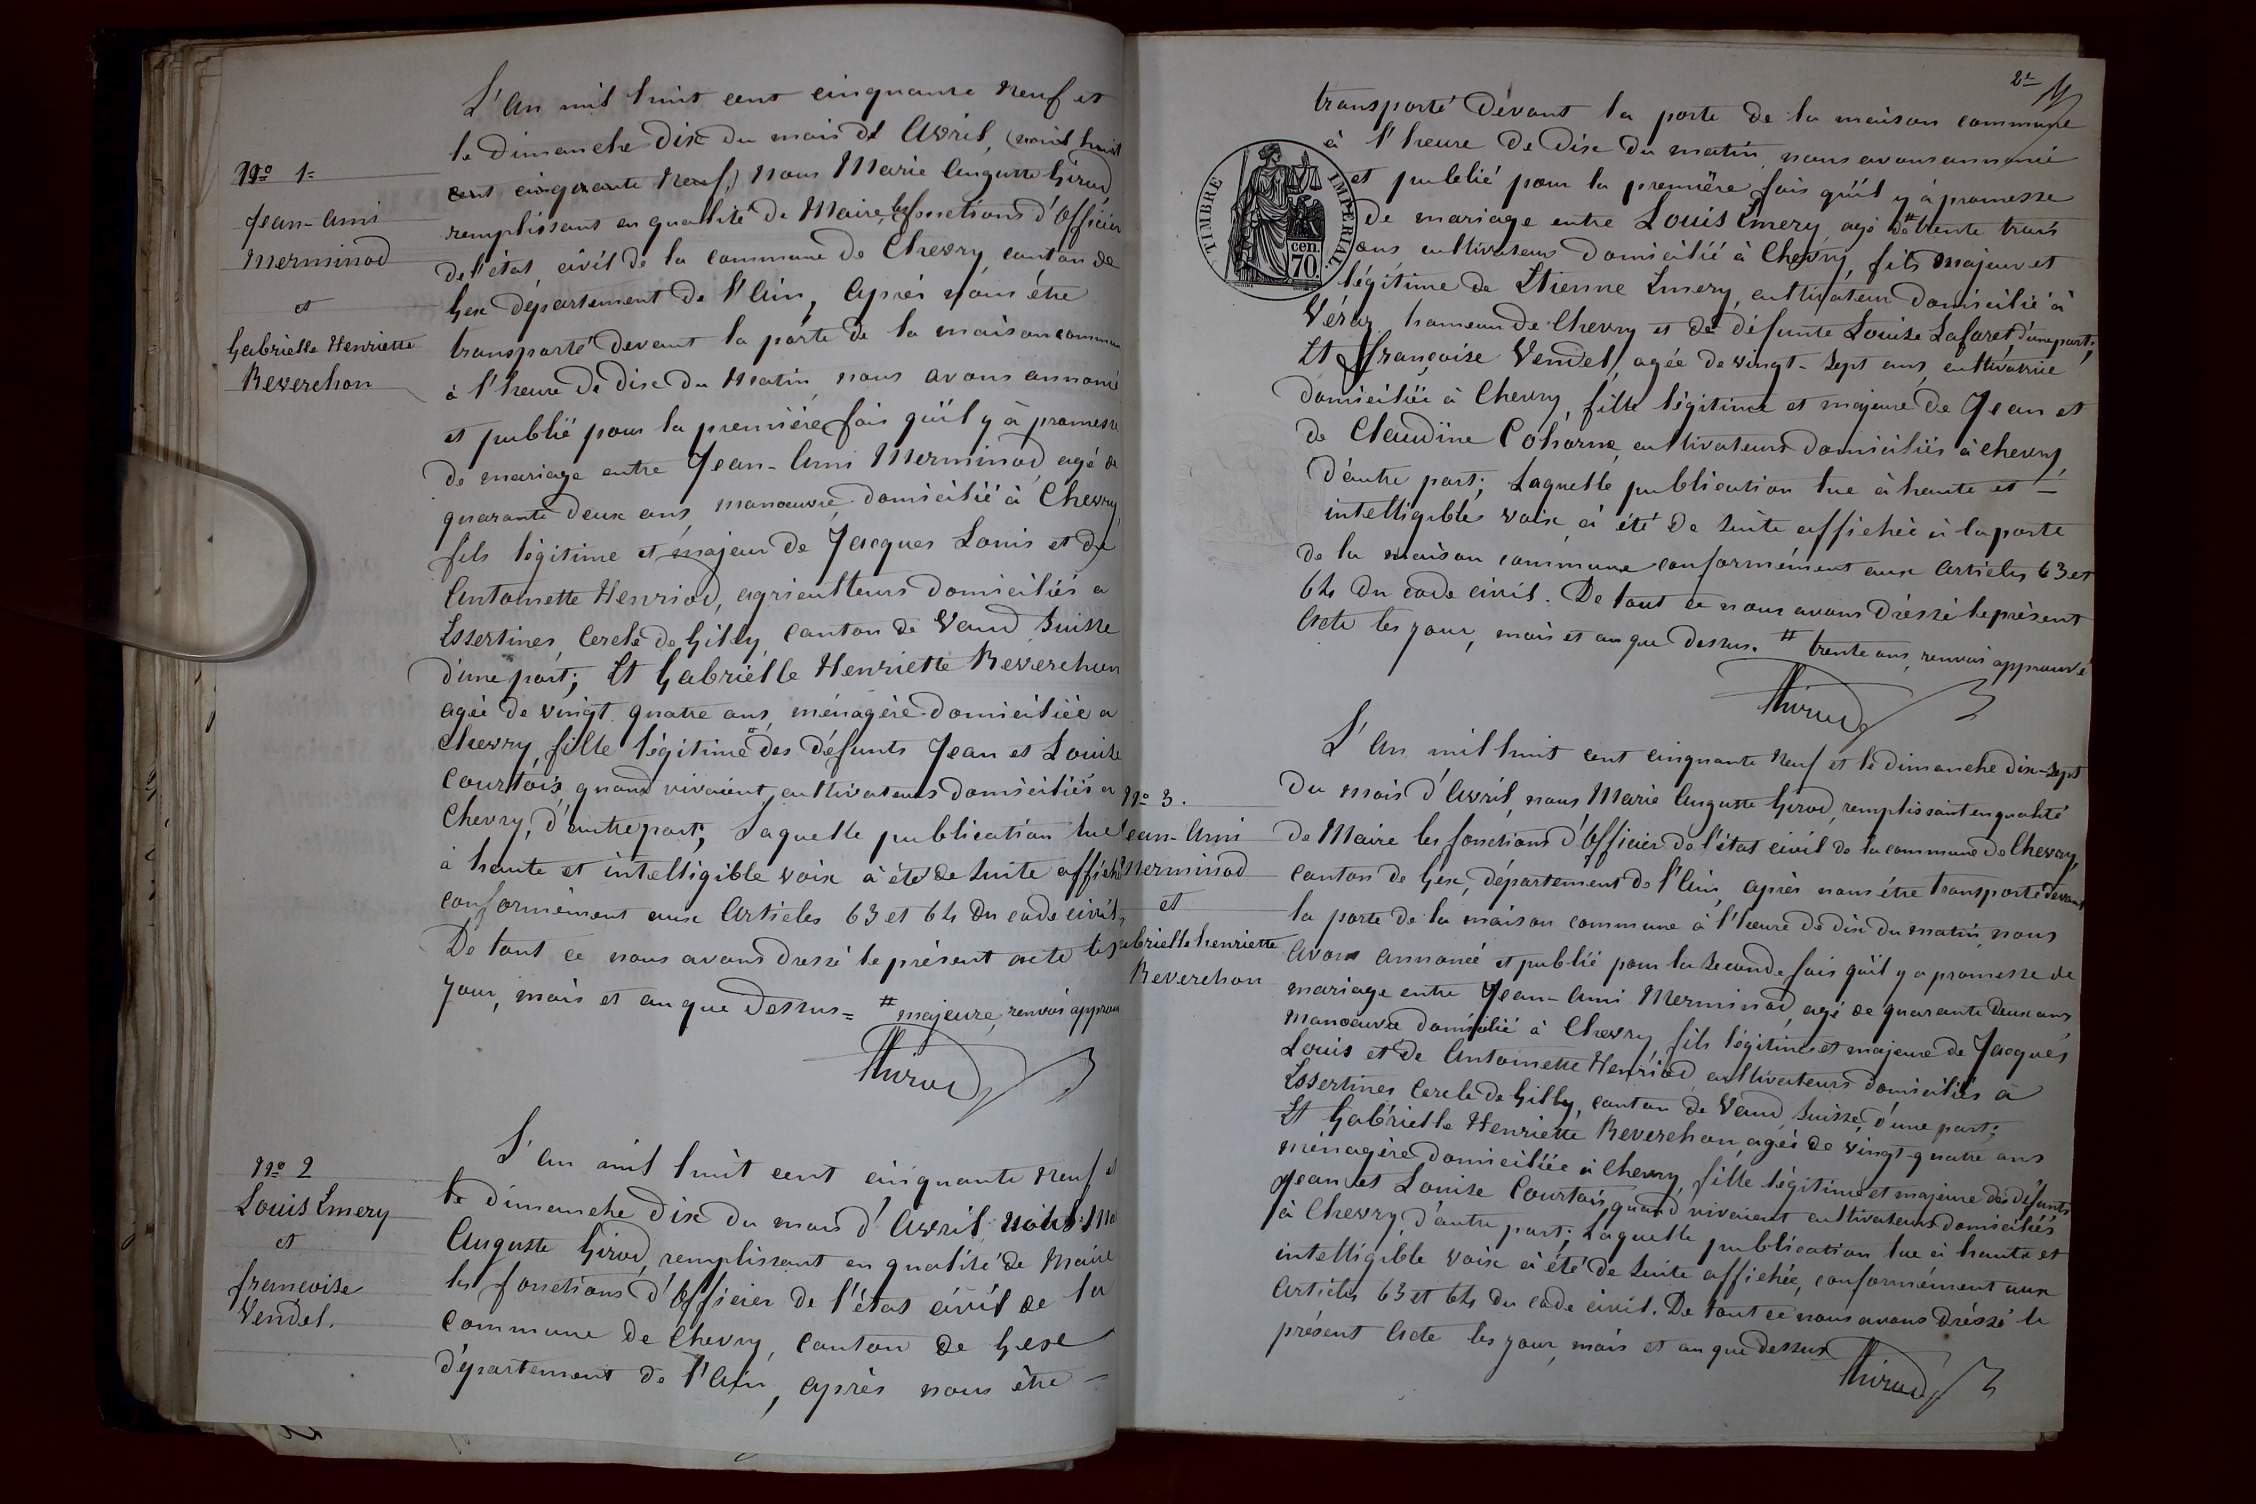 N° 1=
Jean-Ami
Merminod
et
Gabrielle Henriette
Reverchon
L'an mil huit cent cinquante neuf et
le dimanche dix du mois de Avril, (mil huit
cent cinquante neuf,) nous Marie Auguste Girod
remplissant en qualité de Maire, les fonctions d'officier
de l'état civil de la commune de Chevry canton de
Gex département de l'Ain, après nous être
transporté devant la porte de la maison commune
à l'heure de dix du matin, nous avons annoncé
et publié pour la première fois qu'il y à promesse
de mariage entre Jean-Ami Merminod, agé de
quarante deux ans, manœuvre domicilié à Chevry,
fils légitime et majeur de Jacques Louis et de
Antoinette Henriod, agriculteurs domiciliés a
Essertines, Cercle de Gilly, canton de Vaud Suisse
d'une part; Et Gabrielle Henriette Reverchon
agée de vingt quatre ans, ménagère domiciliée a
Chevry, fille légitime # des défunts Jean et Louise
Courtois, quand vivaient cultivateurs domiciliés a
Chevry, d'autre part; Laquelle publication lue
à haute et intelligible voix à été de suite affiché
conformément aux Articles 63 et 64 du code civil,
De tout ce nous avons dressé le présent acte les
jour, mois et an que dessus = # majeure, renvoi approu
AGirod
N° 2
Louis Emery
et
françoise
Vendel.
L'an mil huit cent cinquante neuf et
le dimanche dix du mois d'Avril, nous Ma
Auguste Girod, remplissant en qualité de Maire
les fonctions d'Officier de l'état civil de la
commune de Chevry, canton de Gex
département de l'Ain, après nous être -
2e
transporté devant la porte de la maison commune
à l'heure de dix du matin, nous avons annoncé
et publié pour la première fois qu'il y à promesse
de mariage entre Louis Emery agé de # trente trois
ans, cultivateur domicilié à Chevry, fils majeur et
légitime de Etienne Emery, cultivateur domicilié à
Véraz hameau de Chevry et de défunte Louise Lafaret d'une part;
Et françoise Vendel, agée de vingt-sept ans, cultivatrice
domiciliée à Chevry, fille légitime et majeure de Jean et
de Claudine Coharne, cultivateurs domiciliés à Chevry,
d'autre part; Laquelle publication lue à haute et -
intelligible voix à été de suite affichée à la porte
de la maison commune conformément aux articles 63 et
64 du code civil. De tout ce nous avons dressé le présent
Acte les jour, mois et an que dessus. # trente ans, renvoi approuvé
AGirod
TIMBRE IMPERIAL.
cen.
70.
N° 3.
ean-Ami
Merminod
et
abrielle henriette
Reverchon
L'An mil huit cent cinquante neuf et le dimanche dix-sept
du mois d'Avril, nous Marie Auguste Girod, remplissant en qualité
de Maire les fonctions d'Officier de l'état civil de la commune de Chevry,
canton de Gex, département de l'Ain, après nous être transporté devant
la porte de la maison commune à l'heure de dix du matin, nous
Avons annoncé et publié pour la seconde fois qu'il y a promesse de
mariage entre Jean-Ami Merminod, agé de quarante deux ans,
manœuvre domicilié à Chevry, fils légitime et majeure de Jacques
Louis et de Antoinette Henriod, cultivateurs domiciliés à
Essertines Cercle de Gilly, canton de Vaud, Suisse, d'une part;
Et Gabrielle Henriette Reverchon, agée de vingt-quatre ans
ménagère domiciliée à Chevry, fille légitime et majeure des défunts
Jean et Louise Courtois, quand vivaient cultivateurs domiciliés
à Chevry, d'autre part; Laquelle publication lue à haute et
intelligible voix à été de suite affichée, conformément aux
Articles 63 et 64 du code civil. De tout ce nous avons dressé le
présent Acte les jour, mois et an que dessus
AGirod